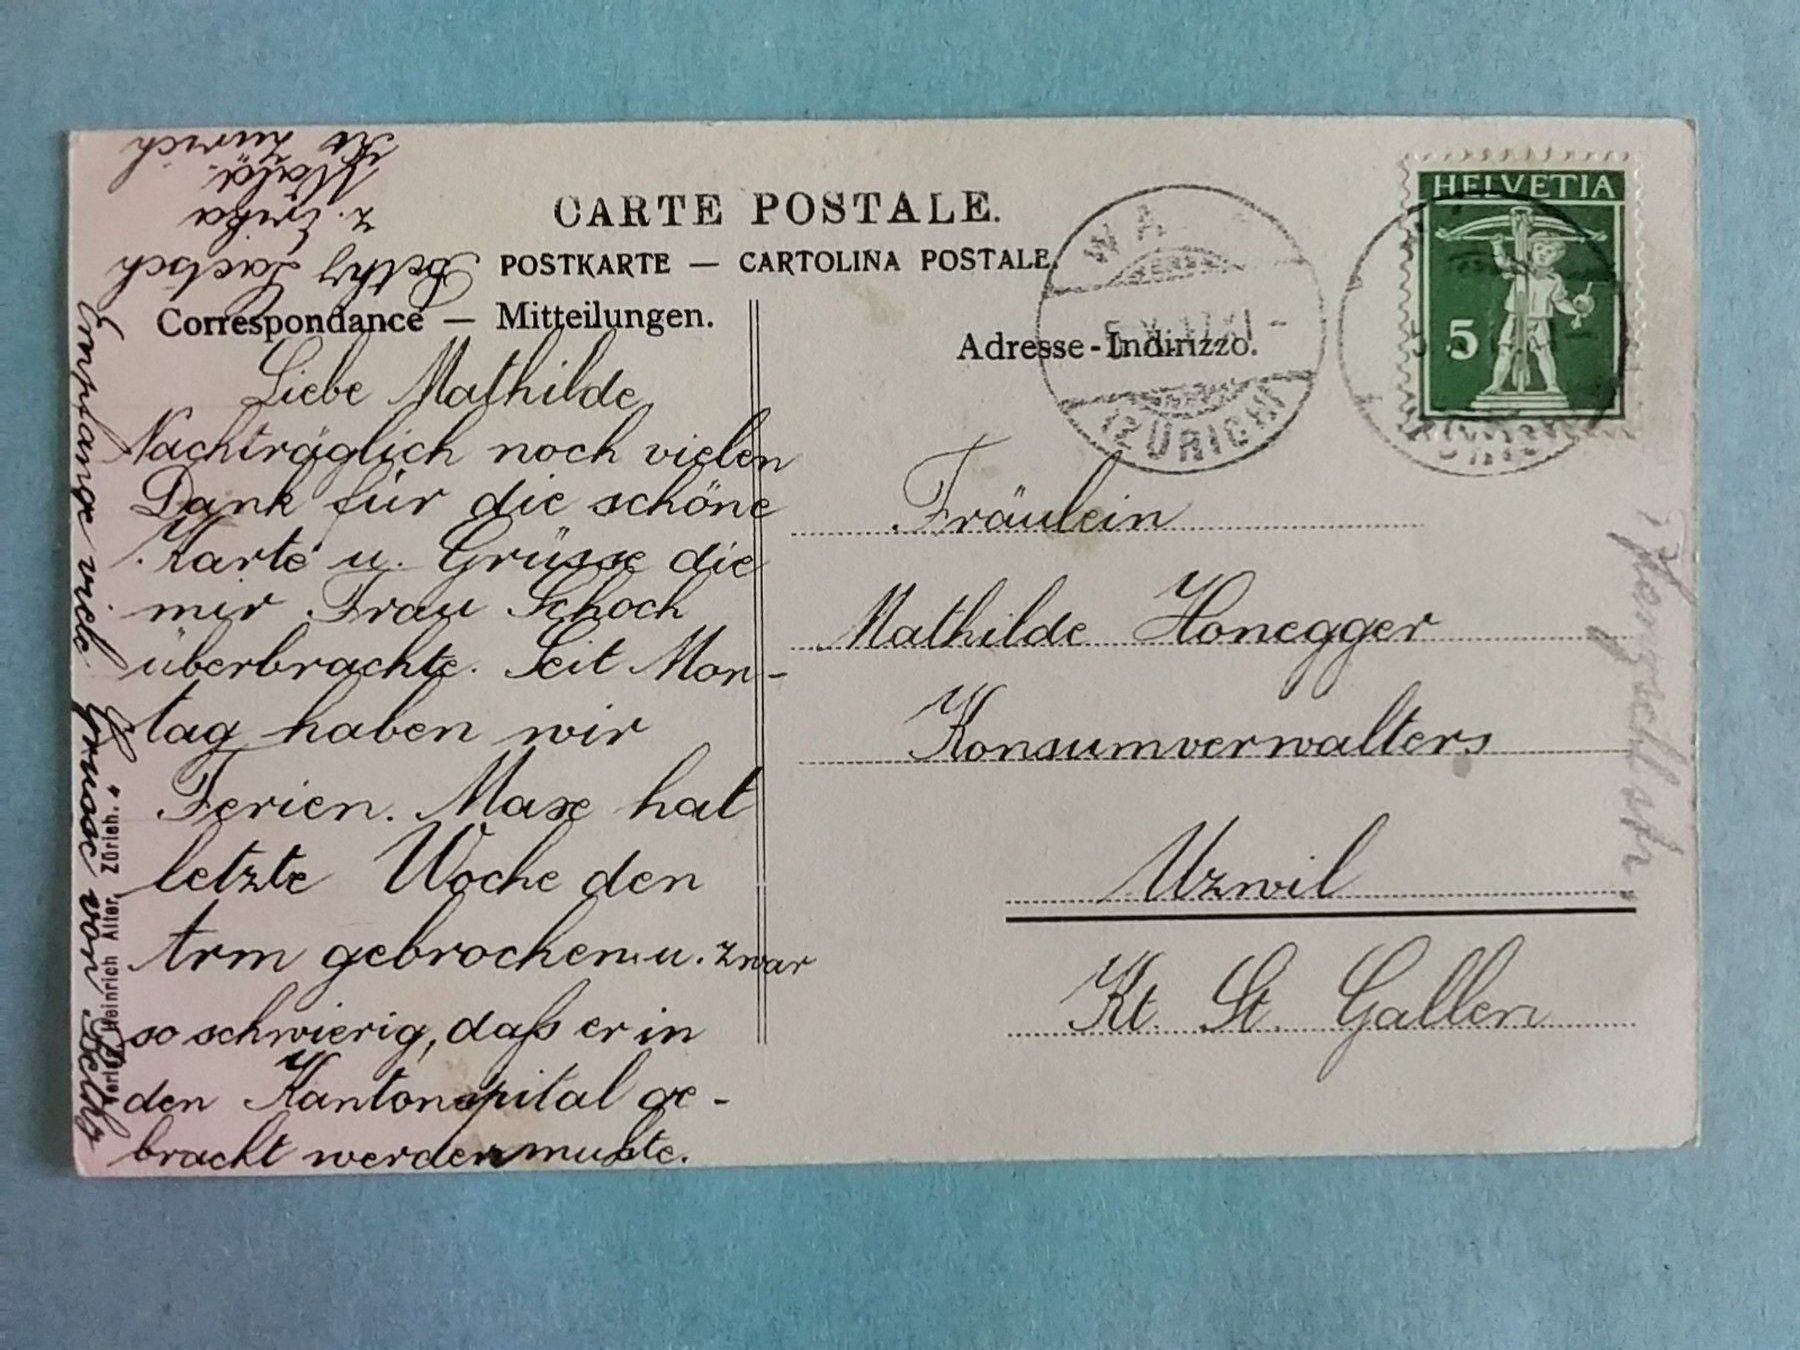 CARTE POSTALE.
POSTKARTE — CARTOLINA POSTALE.
Correspondance — Mitteilungen.
Adresse - Indirizzo.
HELVETIA
5
(ZÜRICH)
Liebe Mathilde
Nachträglich noch vielen
Dank für die schöne
Karte u. Grüsse die
mir Frau Schoch
überbrachte. Seit Mon-
tag haben wir
Ferien. Max hat
letzte Woche den
Arm gebrochen u. zwar
so schwierig, daß er in
den Kantonspital ge-
bracht werden mußte.
Empfange viele Grüsse von Bethy
Bethy
z. Erika
Zürich
Heinrich Alter, Zürich.
Fräulein
Mathilde Honegger
Konsumverwalters
Uzwil
Kt. St. Gallen